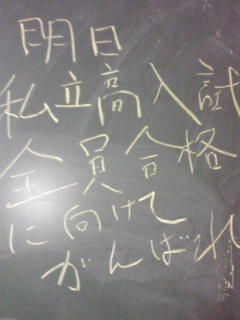 明日
私立高入試
全員合格
に向けて
がんばれ